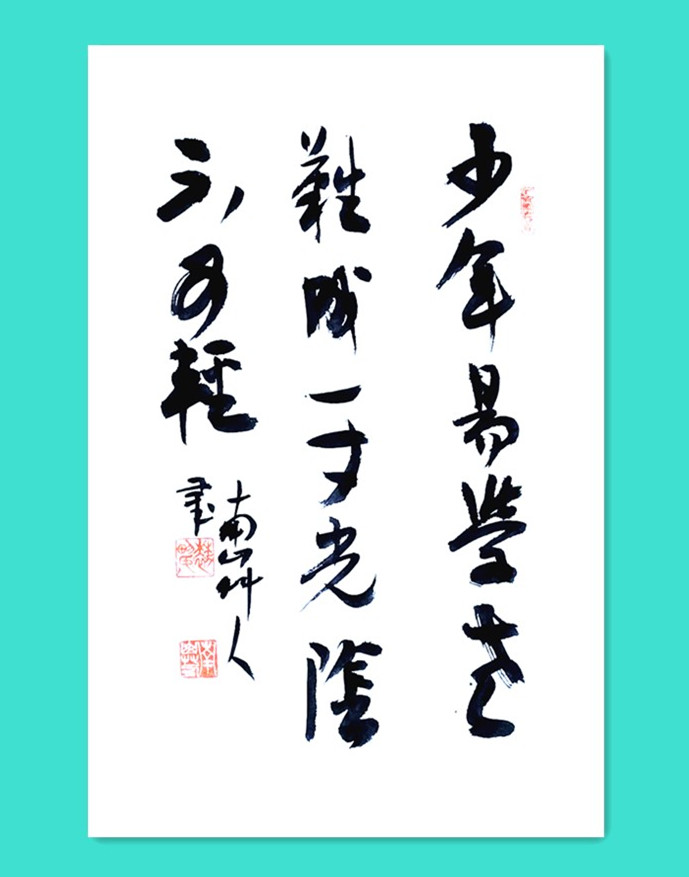 少年易學老
難成一寸光陰
不可輕
南山艸人
書